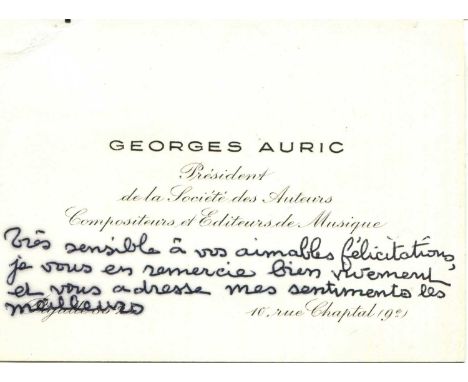 GEORGES AURIC
Président
de la Société des Auteurs
Compositeurs et Editeurs de Musique
Très sensible à vos aimables félicitations,
je vous en remercie bien vivement
et vous adresse mes sentiments les
meilleurs
10, rue Chaptal (9e)